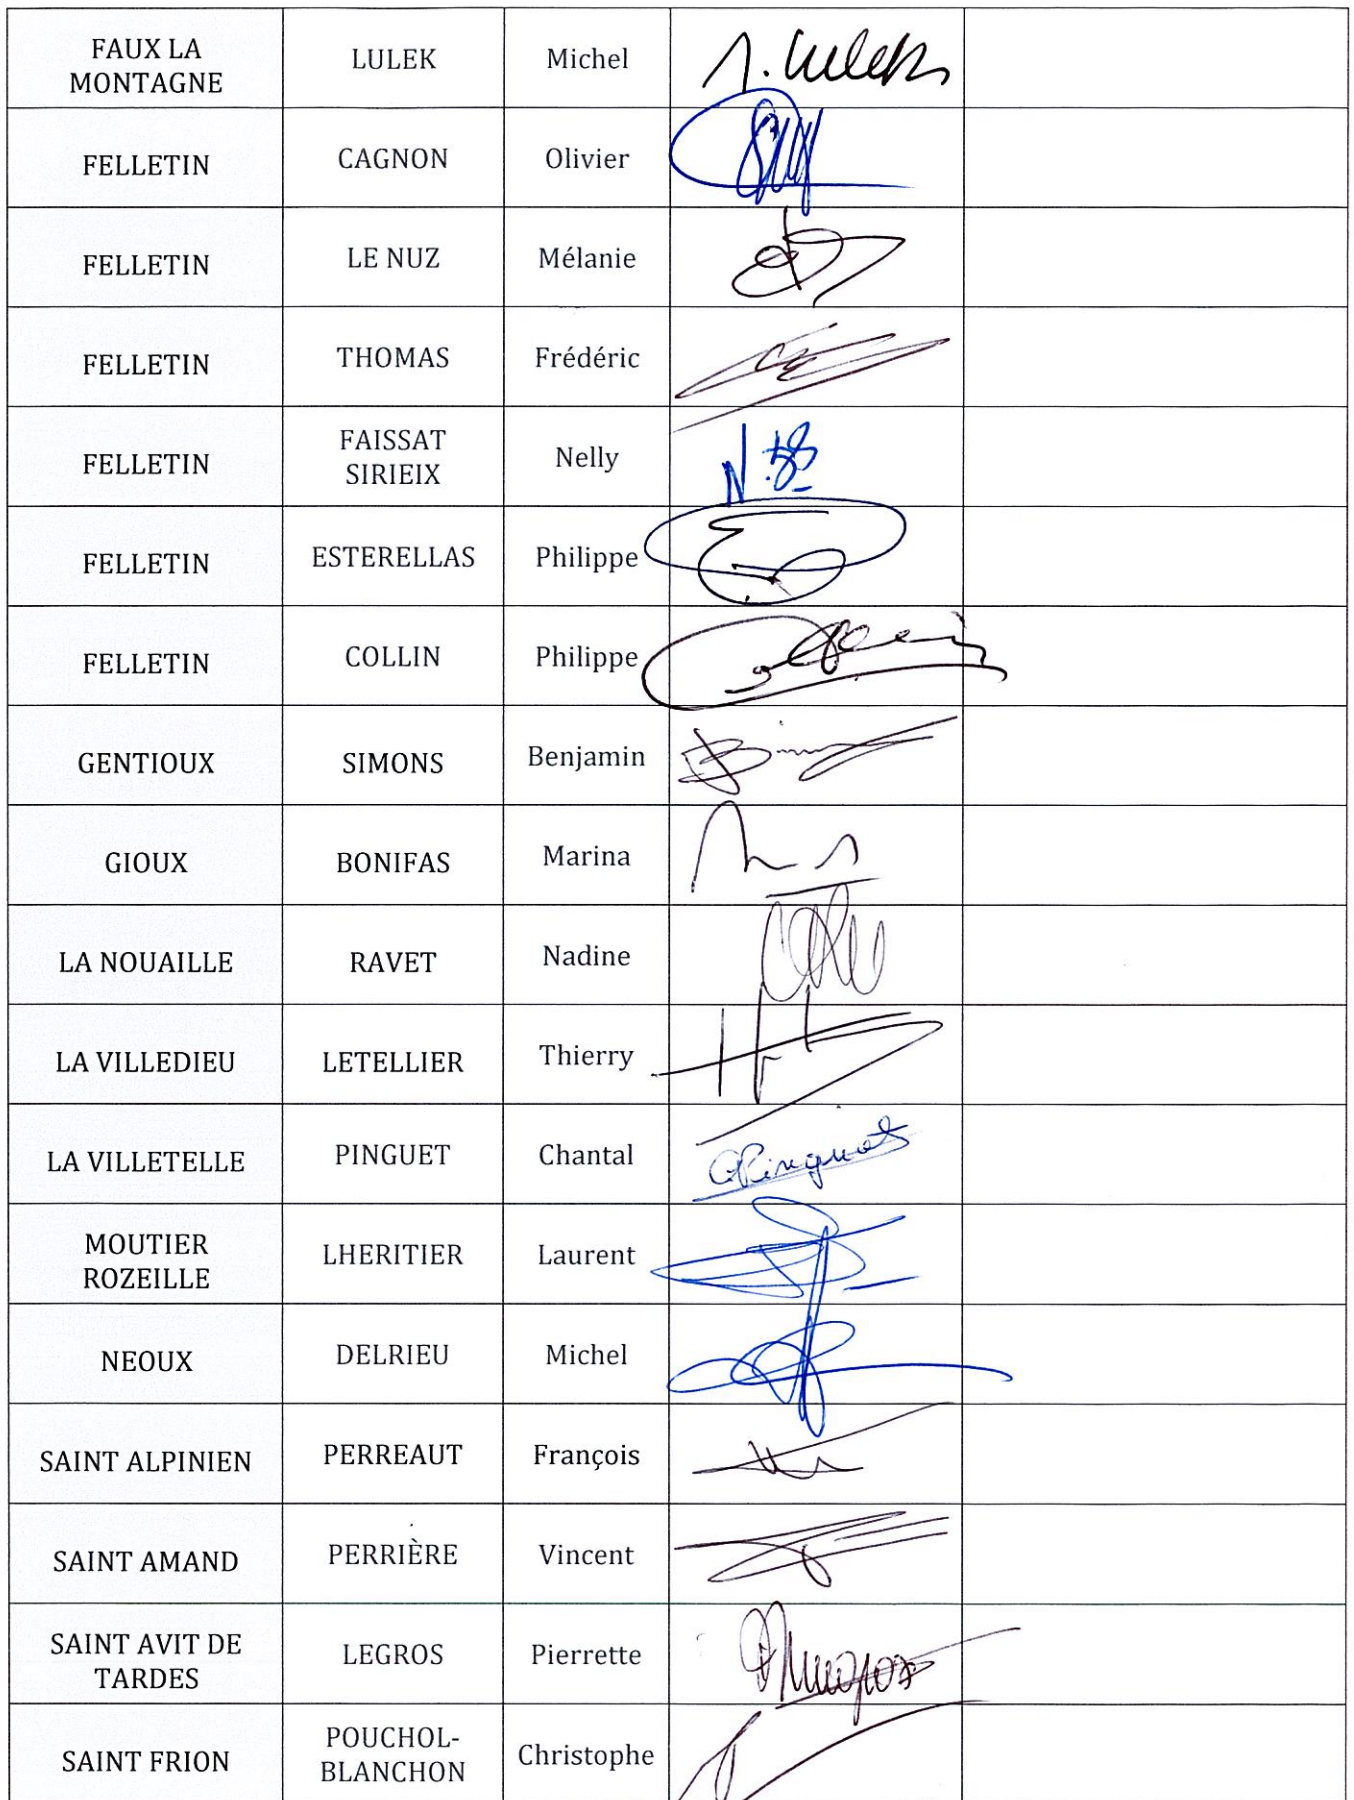 FAUX LA
MONTAGNE
LULEK
Michel
M. Lulek
FELLETIN
CAGNON
Olivier
FELLETIN
LE NUZ
Mélanie
FELLETIN
THOMAS
Frédéric
FELLETIN
FAISSAT
SIRIEIX
Nelly
FELLETIN
ESTERELLAS
Philippe
FELLETIN
COLLIN
Philippe
GENTIOUX
SIMONS
Benjamin
GIOUX
BONIFAS
Marina
LA NOUAILLE
RAVET
Nadine
LA VILLEDIEU
LETELLIER
Thierry
LA VILLETELLE
PINGUET
Chantal
CPinguet
MOUTIER
ROZEILLE
LHERITIER
Laurent
NEOUX
DELRIEU
Michel
SAINT ALPINIEN
PERREAUT
François
SAINT AMAND
PERRIÈRE
Vincent
SAINT AVIT DE
TARDES
LEGROS
Pierrette
SAINT FRION
POUCHOL-
BLANCHON
Christophe